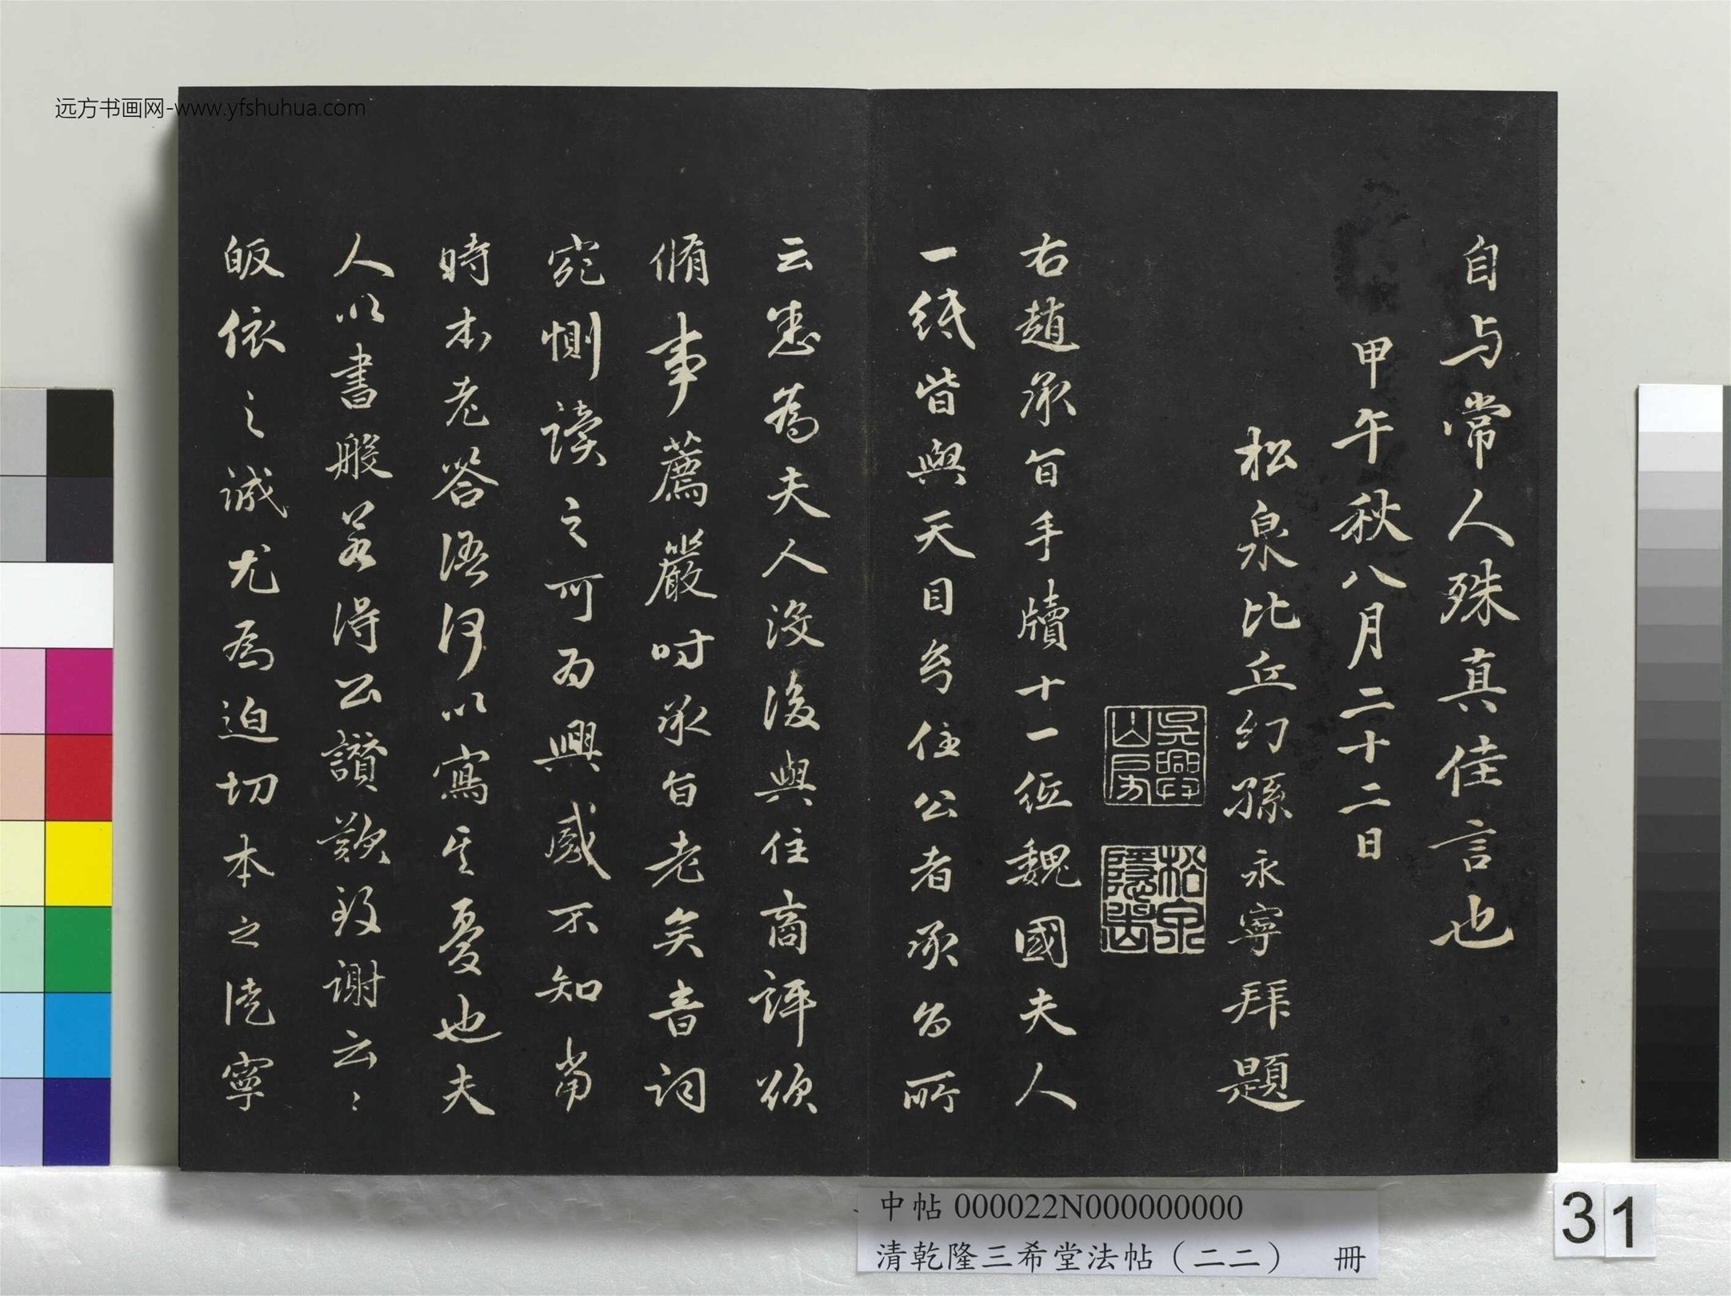 远方书画网-www.yfshuhua.com
自与常人殊真佳言也
甲午秋八月二十二日
松泉比丘幻孫永寧拜題
吳興山房
松泉
右趙承旨手牘十一紙魏國夫人
一紙皆與天目幻住公者承旨所
云悉為夫人沒後與住商評欲
脩事薦嚴时承旨老矣音詞
宛惻读之可为興感不知當
時本老答語何以寫其憂也夫
人以書般若得公讃歎致謝云〻
皈依之誠尤為迫切本之徒寧
中帖 000022N000000000
清乾隆三希堂法帖（二二） 冊
31